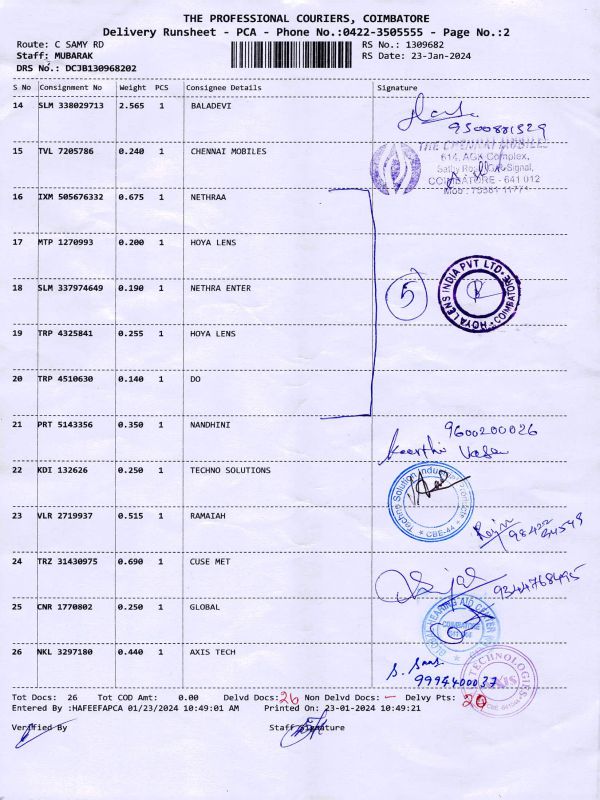 THE PROFESSIONAL COURIERS, COIMBATORE
Delivery Runsheet - PCA - Phone No.:0422-3505555 - Page No.:2
Route: C SAMY RD
RS No.: 1309682
Staff: MUBARAK
RS Date: 23-Jan-2024
DRS No.: DCJB130968202
S No Consignment No Weight PCS Consignee Details Signature
14 SLM 338029713 2.565 1 BALADEVI
9500881529
15 TVL 7205786 0.240 1 CHENNAI MOBILES
THE CHENNAI MOBILES
614, AGS Complex,
Signal,
COIMBATORE - 641 012
16 IXM 505676332 0.675 1 NETHRAA
17 MTP 1270993 0.200 1 HOYA LENS
18 SLM 337974649 0.190 1 NETHRA ENTER
5
HOYA LENS INDIA PVT LTD. COIMBATORE
19 TRP 4325841 0.255 1 HOYA LENS
20 TRP 4510630 0.140 1 DO
21 PRT 5143356 0.350 1 NANDHINI
9600200026
Keerthi Vasa
22 KDI 132626 0.250 1 TECHNO SOLUTIONS
Techno Solution CBE-44
23 VLR 2719937 0.515 1 RAMAIAH
24 TRZ 31430975 0.690 1 CUSE MET
9344768495
25 CNR 1770802 0.250 1 GLOBAL
GLOBAL HEARING AID CENTER
COIMBATORE
26 NKL 3297180 0.440 1 AXIS TECH
9994400037
TECHNOLOGIES
Tot Docs: 26 Tot COD Amt: 0.00 Delvd Docs: 26 Non Delvd Docs: - Delvy Pts: 20
Entered By :HAFEEFAPCA 01/23/2024 10:49:01 AM Printed On: 23-01-2024 10:49:21
Verified By Staff Signature